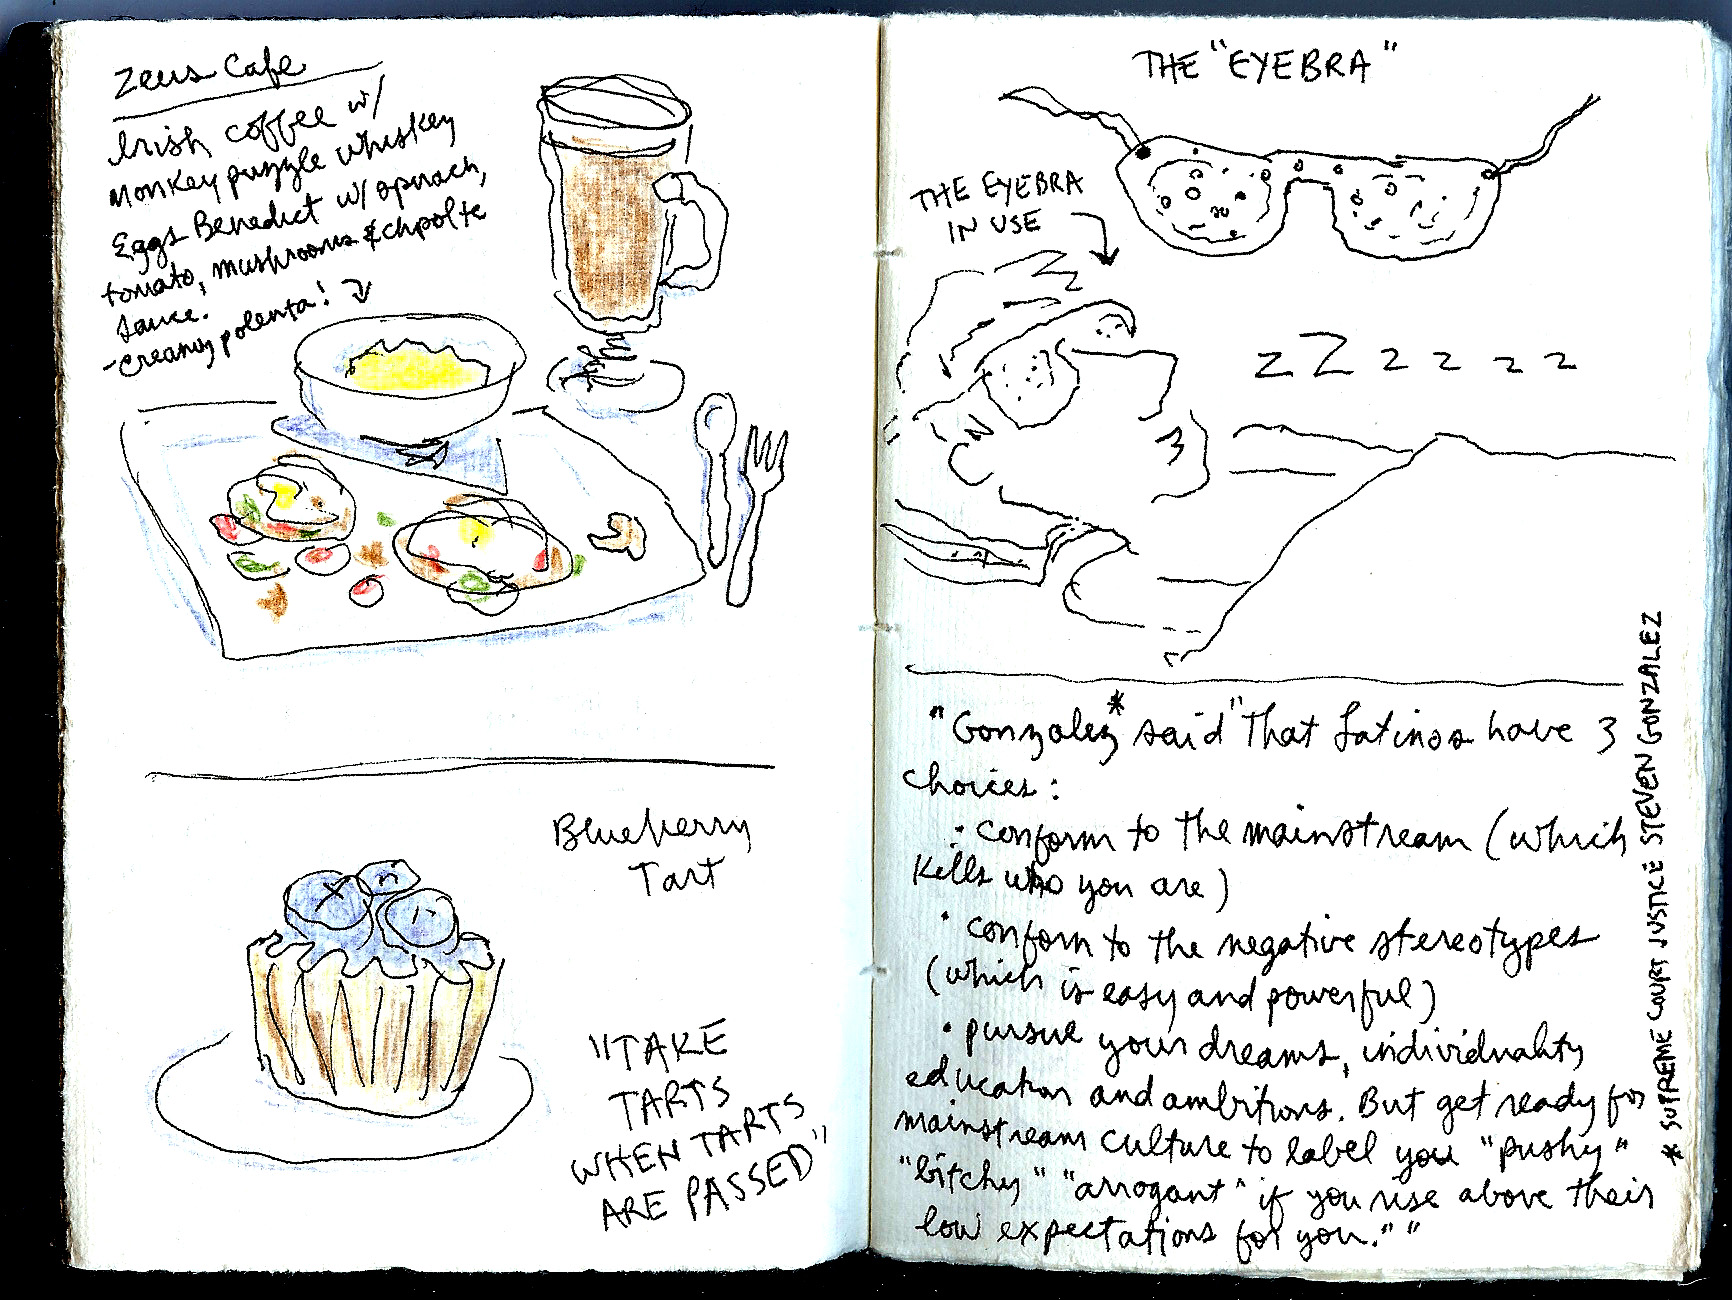 Zeus Cafe
Irish coffee w/
Monkey puzzle whiskey
Eggs Benedict w/ spinach,
tomato, mushrooms & chpolte
sauce.
- creamy polenta!
Blueberry
Tart
"TAKE
TARTS
WHEN TARTS
ARE PASSED"
THE "EYEBRA"
THE EYEBRA
IN USE
z Z z z z z
"Gonzalez* said "that Latinos have 3
choices:
• conform to the mainstream (which
kills who you are)
• conform to the negative stereotypes
(which is easy and powerful)
• pursue your dreams, individuality
education and ambitions. But get ready for
mainstream culture to label you "pushy"
"bitchy" "arrogant" if you rise above their
low expectations for you.""
* SUPREME COURT JUSTICE STEVEN GONZALEZ